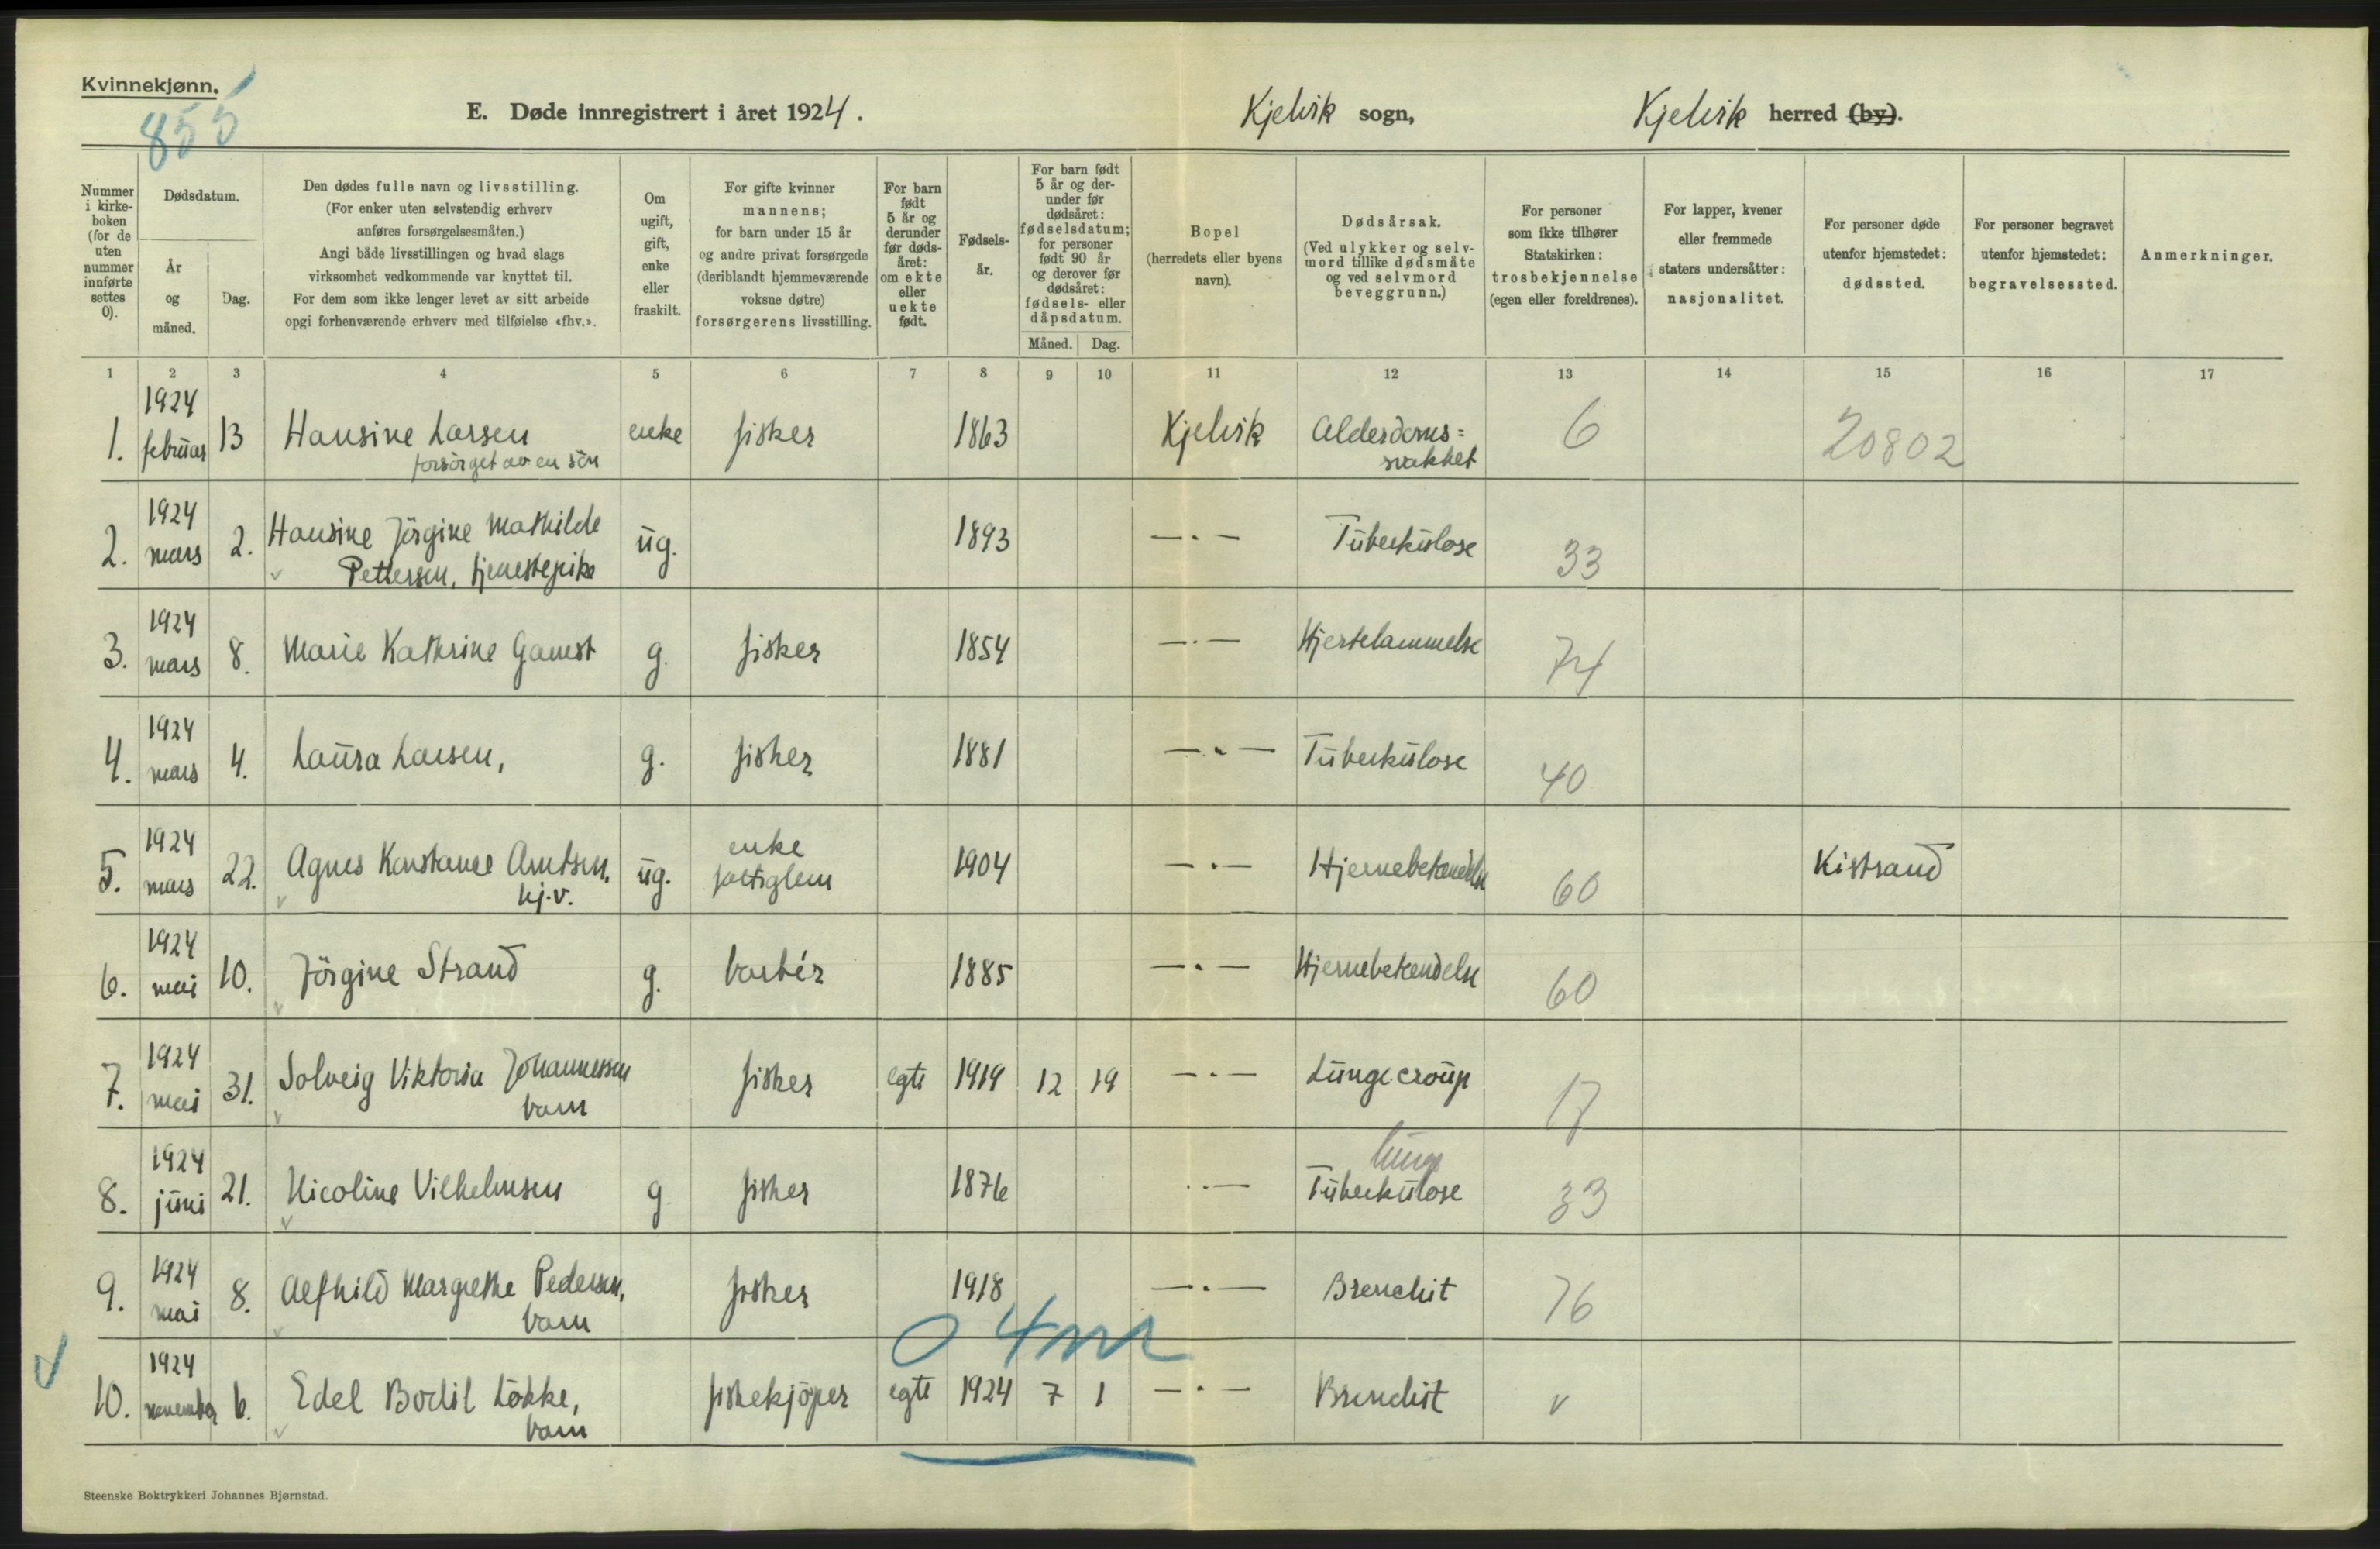 Kvinnekjønn.
855
E. Døde innregistrert i året 1924. Kjelvik sogn, Kjelvik herred (by).
Nummer i kirkeboken (for de uten nummer innførte settes 0).
Dødsdatum.
År og måned.
Dag.
Den dødes fulle navn og livsstilling.
(For enker uten selvstendig erhverv
anføres forsørgelsesmåten.)
Angi både livsstillingen og hvad slags
virksomhet vedkommende var knyttet til.
For dem som ikke lenger levet av sitt arbeide
opgi forhenværende erhverv med tilføielse «fhv.».
Om ugift, gift, enke eller fraskilt.
For gifte kvinner
mannens;
for barn under 15 år
og andre privat forsørgede
(deriblandt hjemmeværende
voksne døtre)
forsørgerens livsstilling.
For barn født 5 år og derunder før dødsåret: om ekte eller uekte født.
Fødselsår.
For barn født 5 år og derunder før dødsåret: fødselsdatum; for personer født 90 år og derover før dødsåret: fødsels- eller dåpsdatum.
Måned. Dag.
Bopel
(herredets eller byens
navn).
Dødsårsak.
(Ved ulykker og selvmord tillike dødsmåte
og ved selvmord
beveggrunn.)
For personer
som ikke tilhører
Statskirken:
trosbekjennelse
(egen eller foreldrenes).
For lapper, kvener
eller fremmede
staters undersåtter:
nasjonalitet.
For personer døde
utenfor hjemstedet:
dødssted.
For personer begravet
utenfor hjemstedet:
begravelsessted.
Anmerkninger.
1 2 3 4 5 6 7 8 9 10 11 12 13 14 15 16 17
1924
1. februar 13 Hansine Larsen enke fisker 1863 Kjelvik Alderdoms= 6 20802
forsörget av en sön svakhet
1924
2. mars 2. Hansine Jörgine Mathilde ug. 1893 —.— Tuberkulose 33
Pettersen, tjenestepike
1924
3. mars 8. Marie Kathrine Gamst g. fisker 1854 —.— Hjertelammelse 74
1924
4. mars 4. Laura Larsen, g. fisker 1881 —.— Tuberkulose 40
1924
5. mars 22. Agnes Konstance Arntsen, ug. enke 1904 —.— Hjernebetændelse 60 Kistrand
hj.v. fattiglem
1924
6. mai 10. Jörgine Strand g. barbér 1885 —.— Hjernebetændelse 60
1924
7. mai 31. Solveig Viktoria Johannessen fisker egte 1919 12 19 —.— Lungecroup 17
barn
1924 lunge
8. juni 21. Nicoline Vilhelmsen g fisker 1876 .— Tuberkulose 33
1924
9. mai 8. Alfhild Margrethe Pedersen, fisker 1918 —.— Bronchit 76
barn
0 4 m
1924
10. november 6. Edel Bodil Lökke, fiskekjöper egte 1924 7 1 —.— Bronchit v
barn
Steenske Boktrykkeri Johannes Bjørnstad.